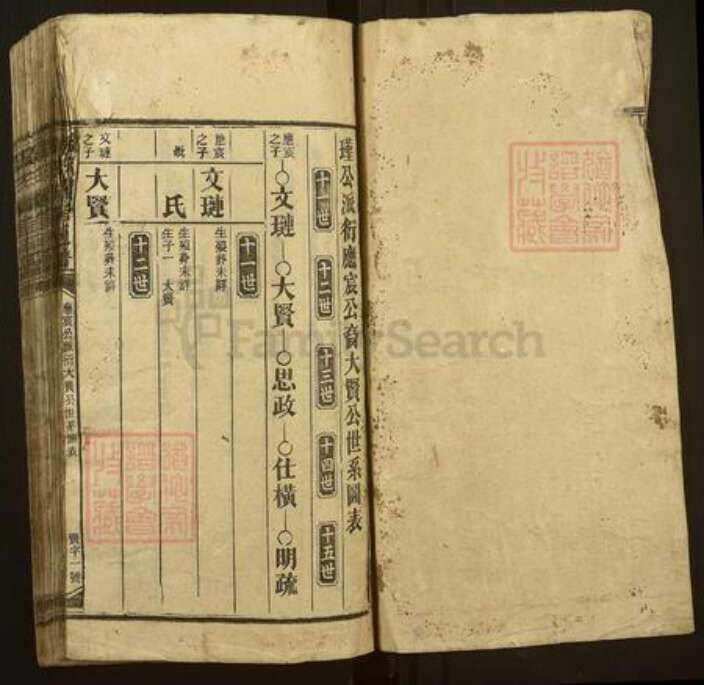 瑾公派衍應宸公裔大賢公世系圖表
十一世 十二世 十三世 十四世 十五世
應宸之子 文璉 大賢 思政 仕橫 明疏
十一世
應宸之子 文璉 生殁葬未詳
氏 生殁葬未詳 生子一 大賢
十二世
文璉之子 大賢 生殁葬未詳
寶字一號
FamilySearch